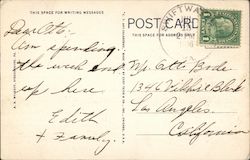 THIS SPACE FOR WRITING MESSAGES
POST CARD
THIS SPACE FOR ADDRESS ONLY
Dear Otto:
Am spending
the week end
up here
Edith
& Family.
Mr. Otto Bode
1346
Los Angeles.
California